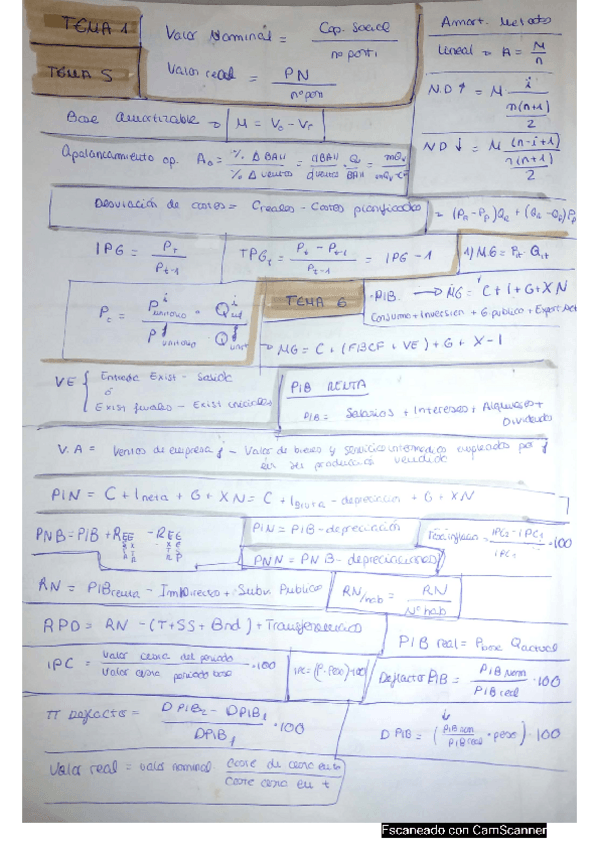 TEMA 1
TEMA 5
Valor Nominal = Cap. Social / nº porti
Valor real = PN / nº port
Amort. Metodo
Lineal → A = M/n
N.D ↑ = M i / (n(n+1)/2)
ND ↓ = M (n-i+1) / (n(n+1)/2)
Base amortizable → M = V₀ - Vr
Apalancamiento op. A₀ = % Δ BAII / % Δ ventas = dBAII / dventas ·
Desviación de costes = Creales - Costes planificados = (Pa - Pp)Qa + (Qa - Qp)Pp
IPG = Pt / Pt-1
TPGt = Pt - Pt-1 / Pt-1 = IPG - 1
1) MG = Pit · Qit
TEMA 6
· PIB. → MG = C + I + G + XN
Consumo + Inversion + G publico + Export. Net
→ MG = C + (FBCF + VE) + G + X - I
VE { Entrada Exist - Salida
ó
Exist finales - Exist iniciales
PIB RENTA
PIB = Salarios + Intereses + Alquileres + Dividendos
V.A = Ventas de empresa j - Valor de bienes y servicios intermedios empleados por j en ser producción vendida
PIN = C + Ineta + G + XN = C + IBruta - depreciación + G + XN
PNB = PIB + R - R
PIN = PIB - depreciación
Tasa inflacion = IPC₂ - IPC₁ / IPC₁ · 100
PNN = PNB - depreciaciones
RN = PIBrenta - ImpDirectos + Subv. Publica
RN/hab = RN / Nº hab
RPD = RN - (T + SS + Bnd) + Transferencias
PIB real = Pbase Qactual
IPC = Valor cesta del periodo / Valor cesta periodo base · 100
IPC = (P · Peso) · 100
Deflactor PIB = PIB nom / PIB real · 100
π Deflactor = DPIB₂ - DPIB₁ / DPIB₁ · 100
D PIB = (PIB nom / PIB real · peso) · 100
Valor real = valor nominal
Escaneado con CamScanner